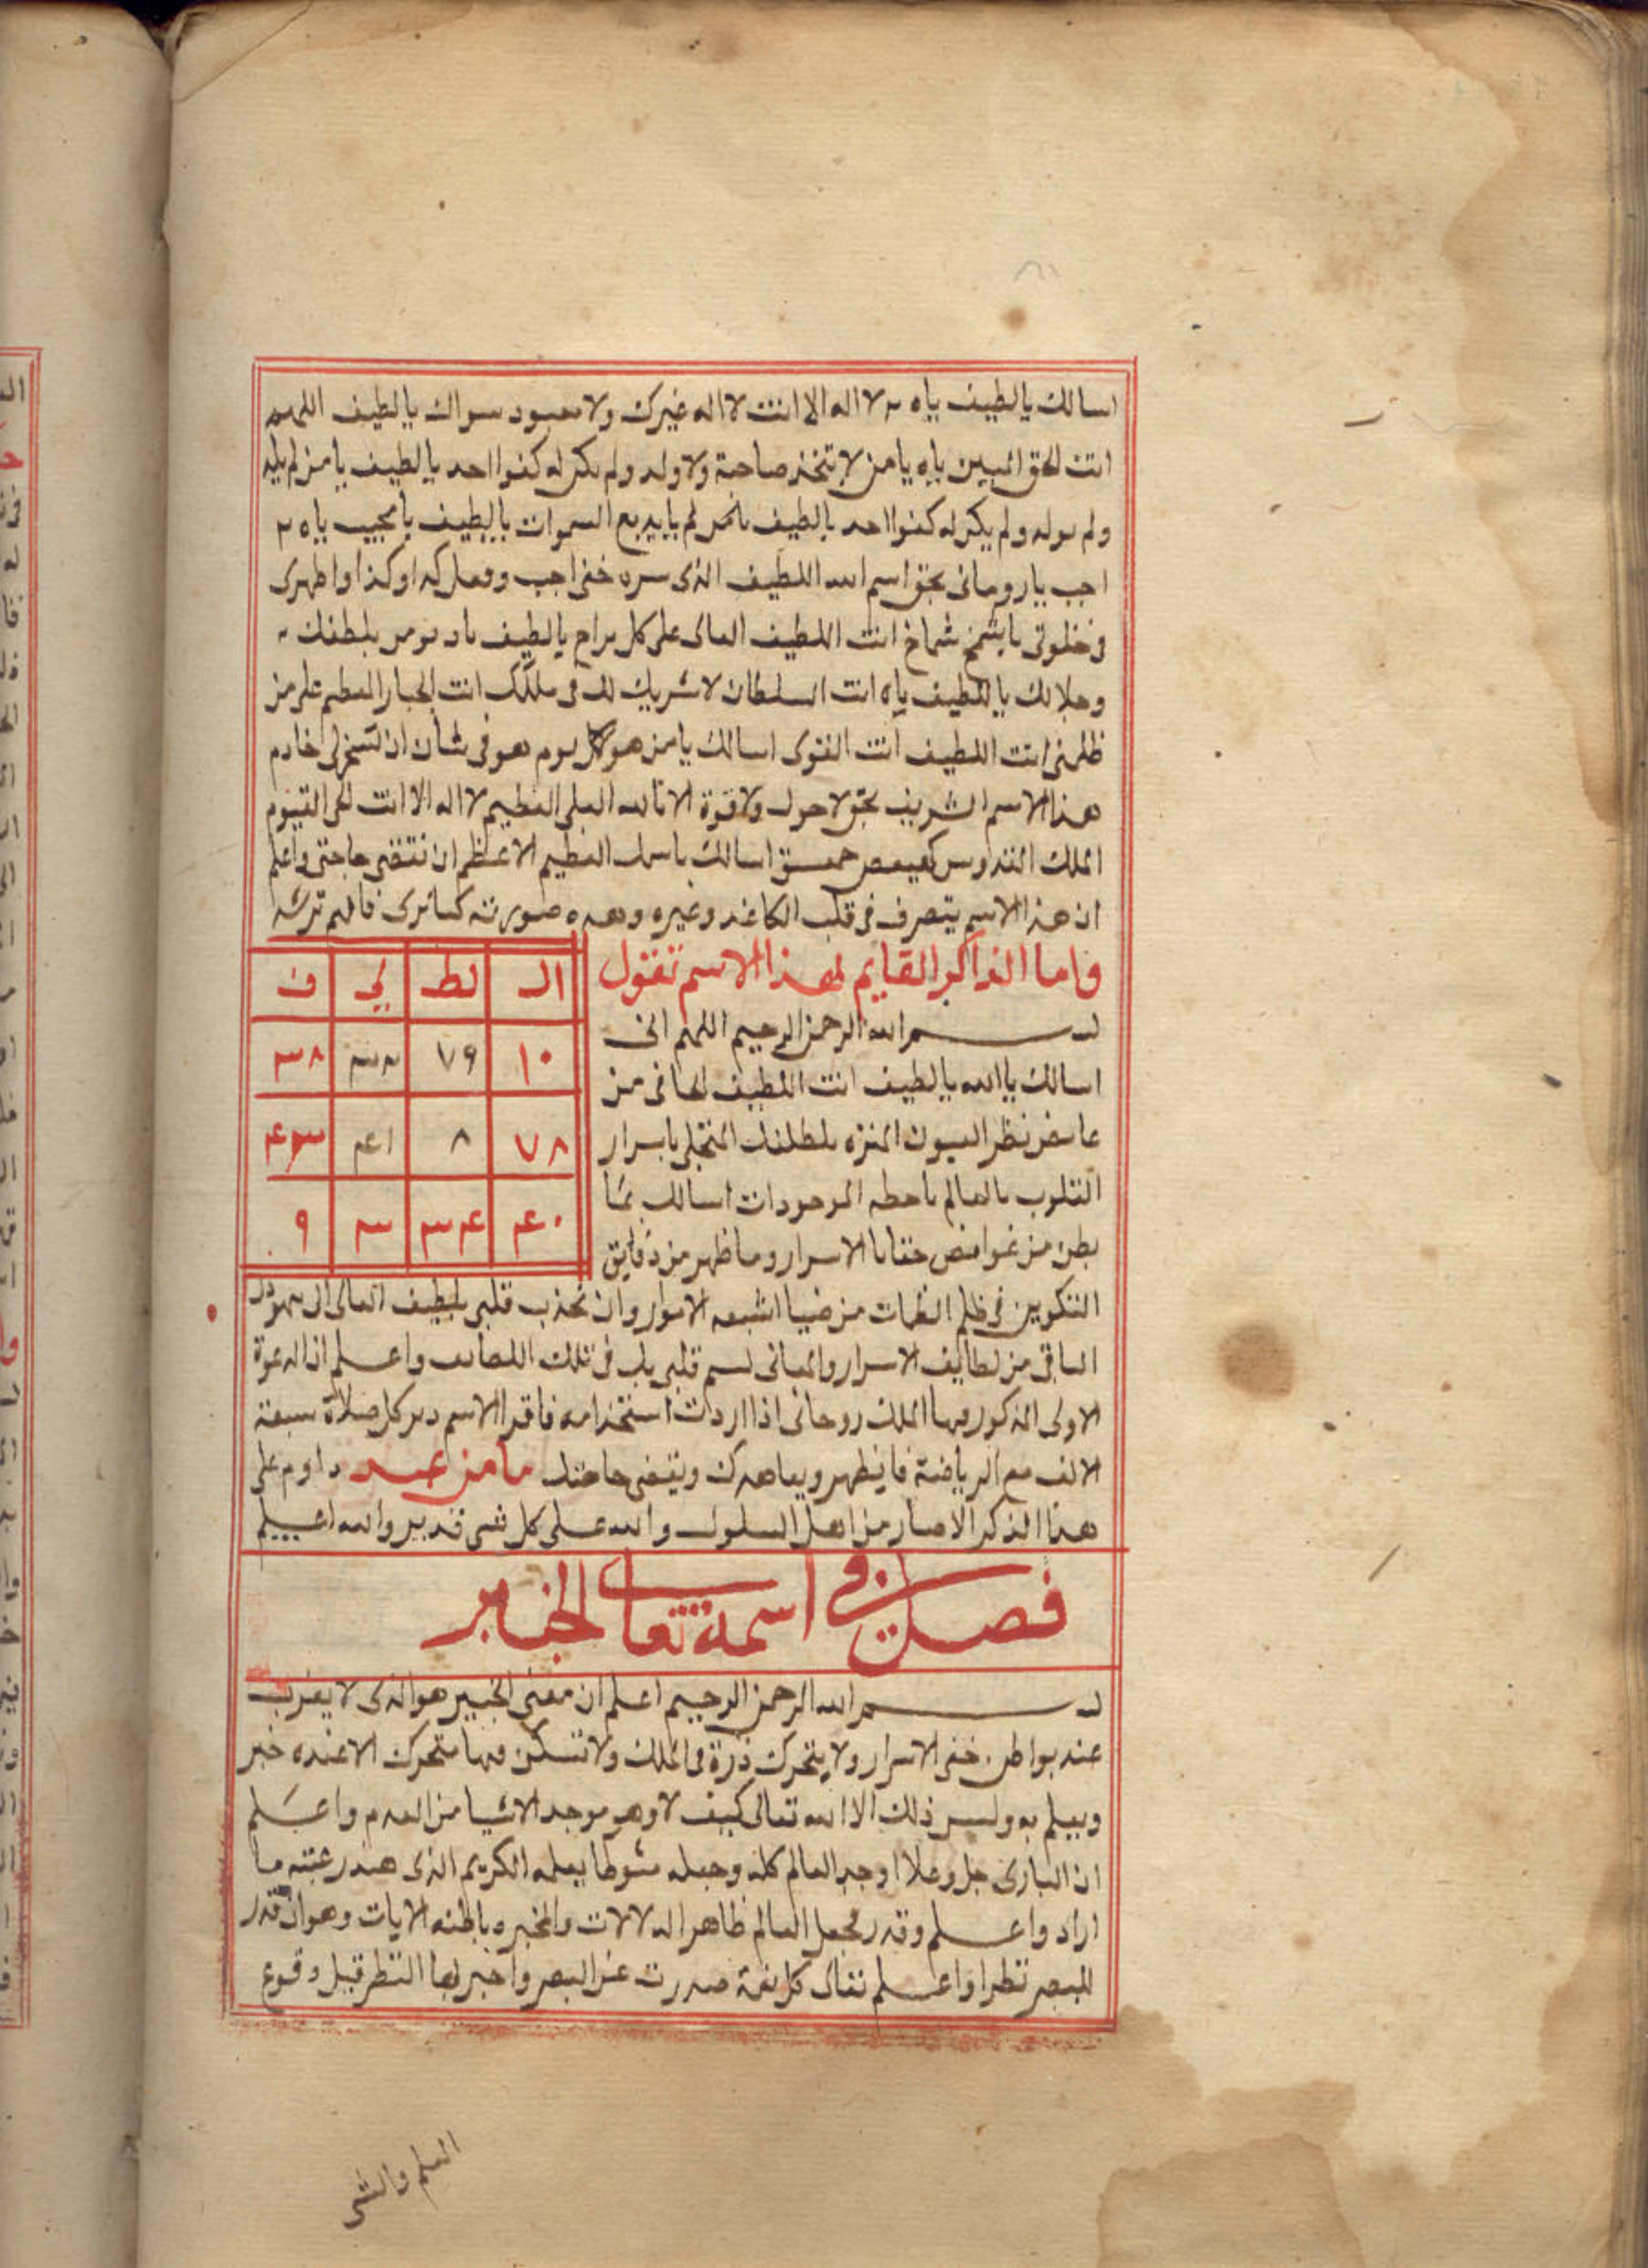 اسالك يالطيف ياه لا اله الا انت لا اله غيرك ولا معبود سواك يالطيف اللهم
انت الحق المبين ياه يامن لا يتخذ صاحبة ولا ولد ولم يكن له كفوا احد يالطيف يامن لم يلد
ولم يولد ولم يكن له كفوا احد يالطيف يابديع السموات يالطيف يامجيب ياه
اجب ياروحانى بحق اسم الله اللطيف الذى سره خفى اجب وفعل كذا وكذا واظهرى
فى خلوتى شماخ انت اللطيف العالى على كل براح يالطيف بلطفك
وجلالك يالطيف ياه انت السلطان لا شريك لك فى ملكك انت الجبار العظيم على من
ظلمنى انت اللطيف انت القوى اسالك يامن هو كل يوم هو فى شان ان تسخرلى خادم
هذا الاسم الشريف بحق لا حول ولا قوة الا بالله العلى العظيم لا اله الا انت الحى القيوم
الملك القدوس كهيعص حمعسق اسالك باسمك العظيم الاعظم ان تقضى حاجتى واعلم
ان هذا الاسم يتصرف فى قلب الكاغد وغيره وهذه صورته كماترى فافهم ترشد
واما الذاكر القايم لهذا الاسم تقول
بسم الله الرحمن الرحيم اللهم انى
اسالك ياالله يالطيف انت اللطيف
نظر العيون المنزه بلطفك المتجلى باسرار
القلوب بالعالم باحطه الموجودات اسالك بما
بطن من غوامض خفايا الاسرار وماظهر من دقايق
ال لط ي ف
١٠ ٧٩ ٣٨
٧٨ ٨ ٤١
٤٠ ٩
التكوين فى ظلم الظلمات من ضيا اشعه الانوار وان تجذب قلبى
الباقى من لطايف الاسرار والمعانى قلبى فى تلك اللطايف واعلم ان الدعوة
الاولى المذكور فيها الملك روحانى اذا اردت استخدامه فاقرا الاسم دبر كل صلاة سبعة
الاف مع الرياضة فايظهر ويعاهدك ويقضى حاجتك مامن عبد داوم على
هذا الذكر الا صار من اهل السلوك والله على كل شى قدير والله اعلم
فصل فى اسمه تعالى الخبير
بسم الله الرحمن الرحيم اعلم ان معنى الخبير هو الذى لا يعزب
عنه بواطن خفى الاسرار ولا يتحرك ذرة فى الملك ولا تسكن فيها متحرك الا عنده خبر
ويعلم به وليس ذلك الا الله تعالى كيف لا وهو موجد الاشيا من العدم واعلم
ان البارى جل وعلا اوجد العالم كله وجعله بعلمه الكريم الذى ما
اراد واعلم وقدر فجعل العالم ظاهر الدلالات والخبره باطنه الايات وهو ان قدر
للبصر نظرا واعلم تعالى صدرت عن البصر واخبر بها النظر قبل وقوع
العلم والشى